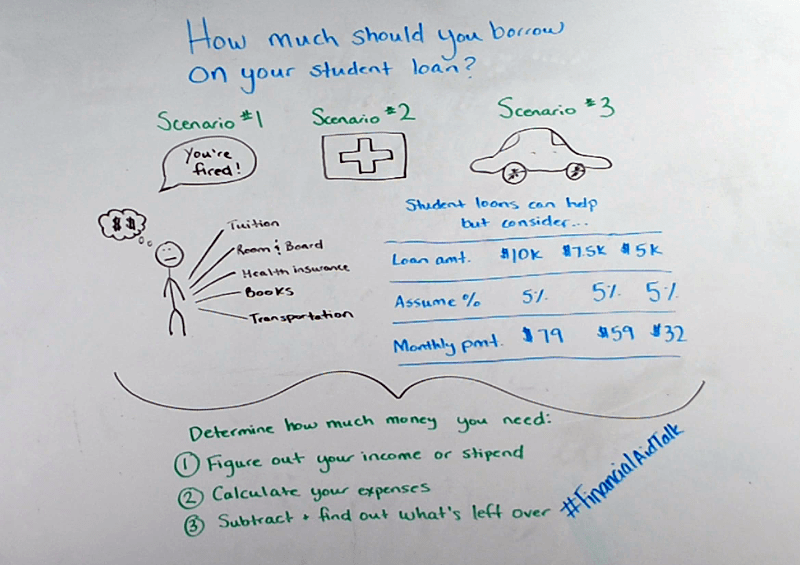 How much should you borrow
on your student loan?
Scenario #1
Scenario #2
Scenario #3
You're
fired!
$$
Tuition
Room & Board
Health insurance
Books
Transportation
Student loans can help
but consider...
Loan amt. $10K $7.5K $5K
Assume % 5% 5% 5%
Monthly pmt. $79 $59 $32
Determine how much money you need:
① Figure out your income or stipend
② Calculate your expenses
③ Subtract + find out what's left over
#FinancialAidTalk